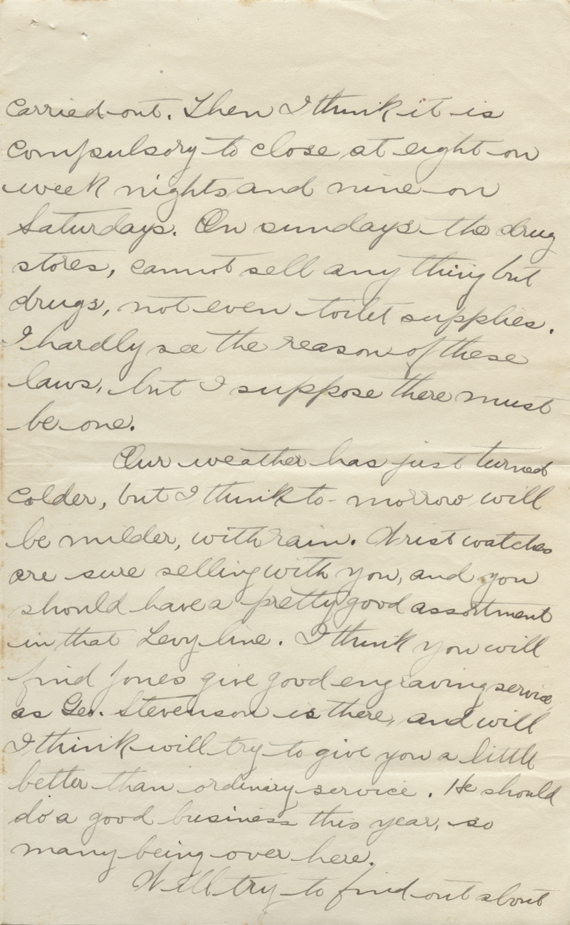 carried out. Then I think it is
compulsory to close at eight on
week nights and nine on
Saturdays. On sundays the drug
stores, cannot sell any thing but
drugs, not even toilet supplies.
I hardly see the reason of these
laws, but I suppose there must
be one.
Our weather has just turned
colder, but I think to-morrow will
be milder, with rain. Wrist watches
are sure selling with you, and you
should have a pretty good assortment
in that Levy line. I think you will
find Jones give good engraving service,
as Geo. Stevenson is there, and will
I think will try to give you a little
better than ordinary service. He should
do a good business this year, so
many being over here.
Will try to find out about